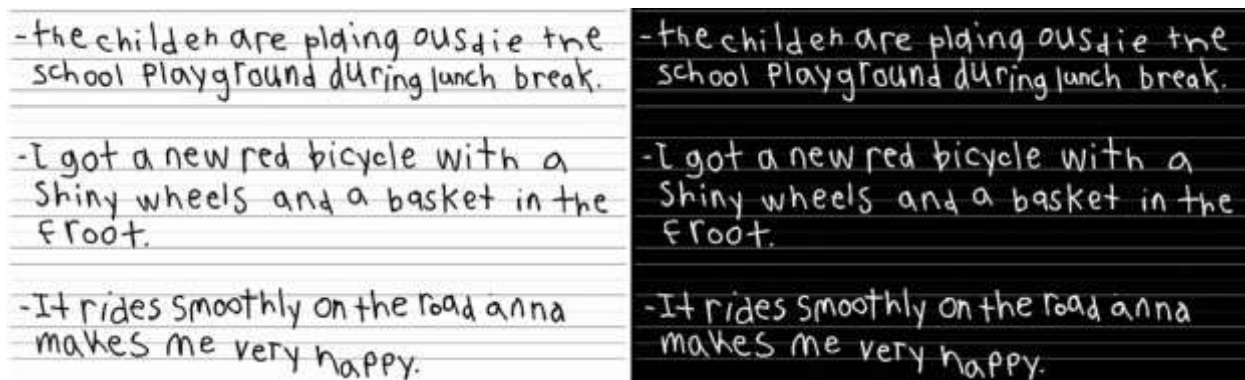 -the childen are plaing ousdie tne
school Playground during lunch break.
-I got a new red bicycle with a
Shiny wheels and a basket in the
Froot.
-It rides smoothly on the road anna
makes me very happy.
-the childen are plaing ousdie tne
school Playground during lunch break.
-I got a new red bicycle with a
Shiny wheels and a basket in the
Froot.
-It rides smoothly on the road anna
makes me very happy.